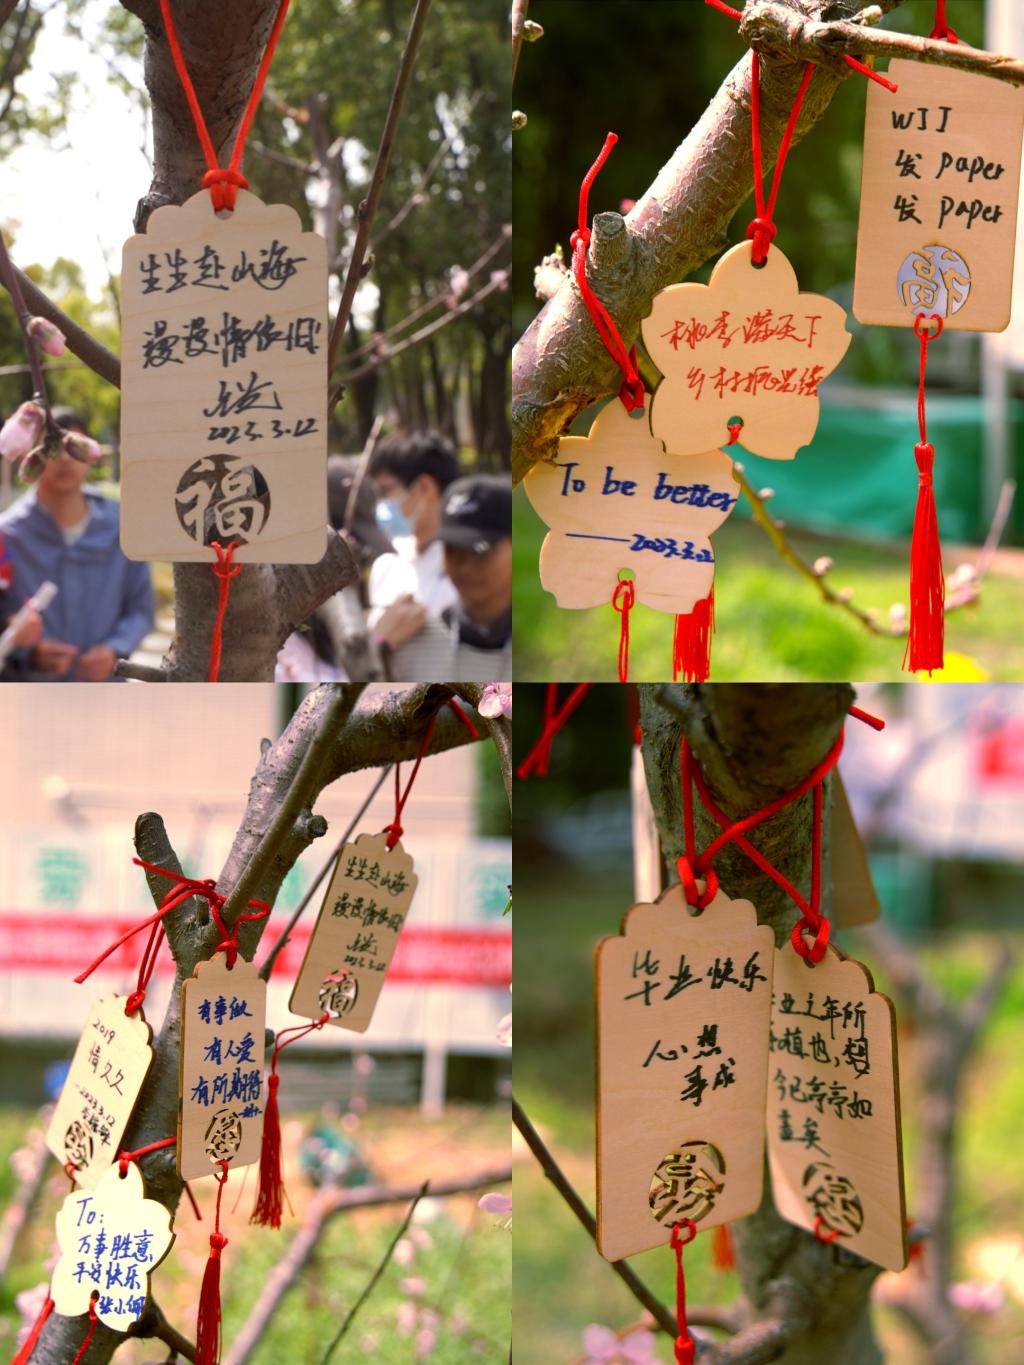 生生赴山海
漫漫情依旧
2023.3.12
福
WJJ
发 paper
发 paper
桃李满天下
乡村振兴绘
To be better
——2023.3.12
生生赴山海
漫漫情依旧
2023.3.12
福
有事做
有人爱
有所期待
2019
情久久
—2023.3.12
To:
万事胜意
平安快乐
毕业快乐
心想
事成
业之年所
植也,想
今已亭亭如
盖矣
福